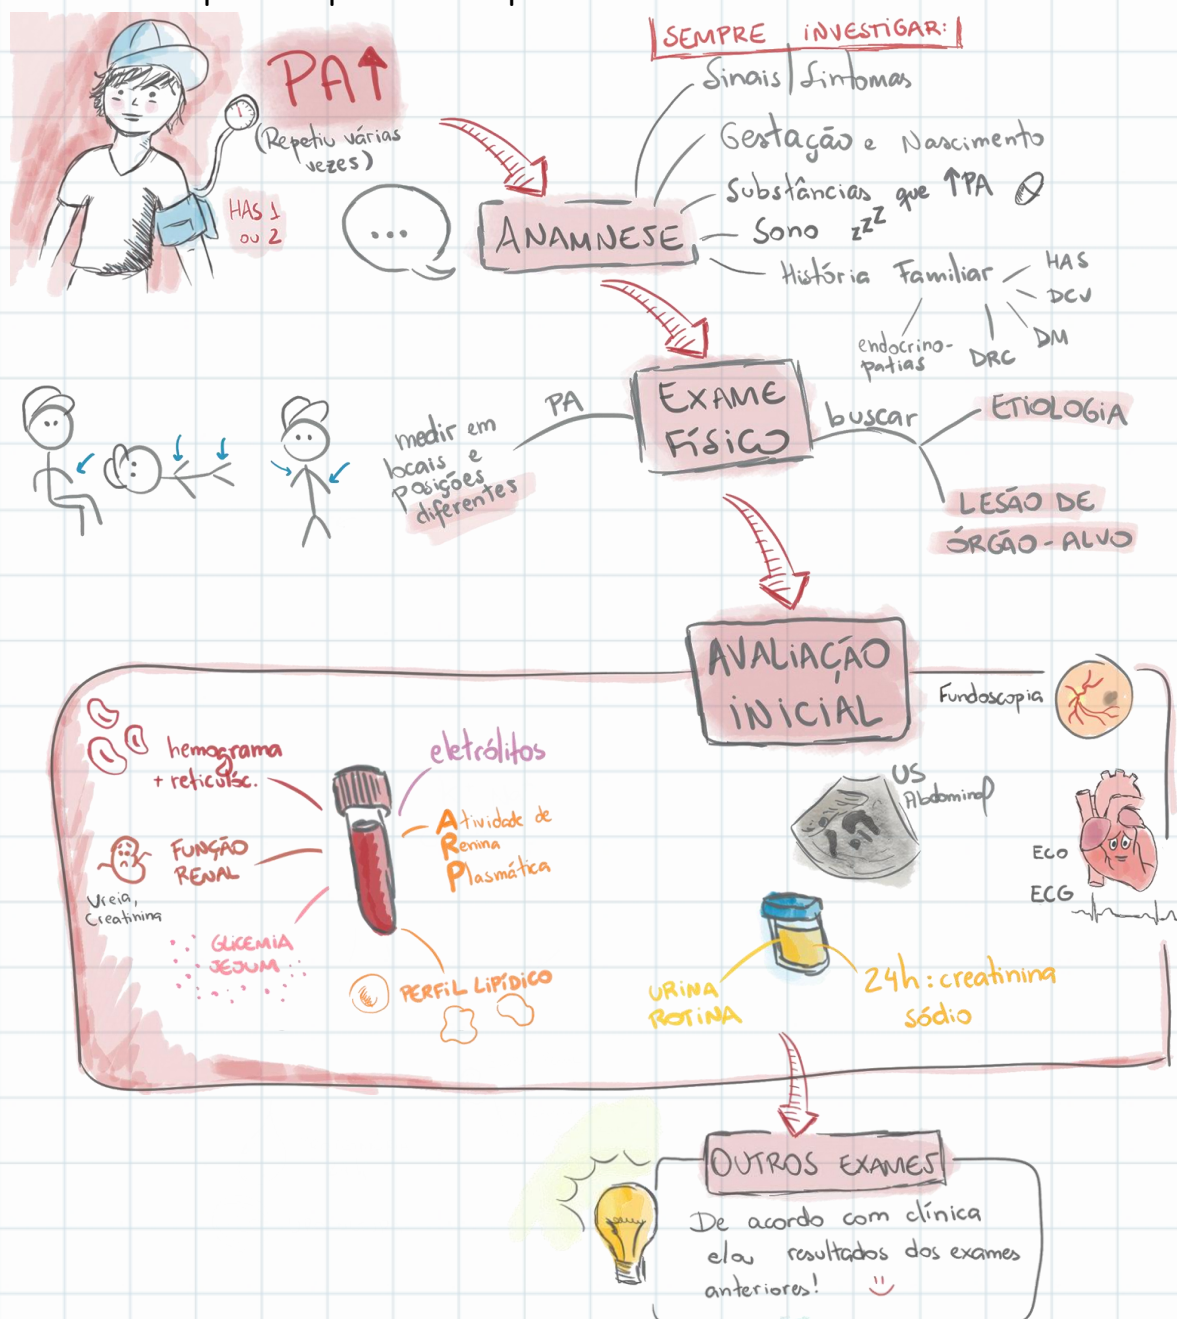 PA↑
(Repetiu várias
vezes)
HAS 1
ou 2
...
SEMPRE INVESTIGAR:
Sinais | Sintomas
Gestação e Nascimento
Substâncias que ↑PA
Sono zzz
História Familiar
HAS
DCV
DM
DRC
endocrino-
patias
ANAMNESE
EXAME
FÍSICO
PA
medir em
locais e
posições
diferentes
buscar
ETIOLOGIA
LESÃO DE
ÓRGÃO-ALVO
AVALIAÇÃO
INICIAL
Fundoscopia
hemograma
+ reticulóc.
eletrólitos
Atividade de
Renina
Plasmática
FUNÇÃO
RENAL
Ureia,
Creatinina
GLICEMIA
JEJUM
PERFIL LIPÍDICO
US
Abdominal
ECO
ECG
URINA
ROTINA
24h: creatinina
sódio
OUTROS EXAMES
De acordo com clínica
e/ou resultados dos exames
anteriores!